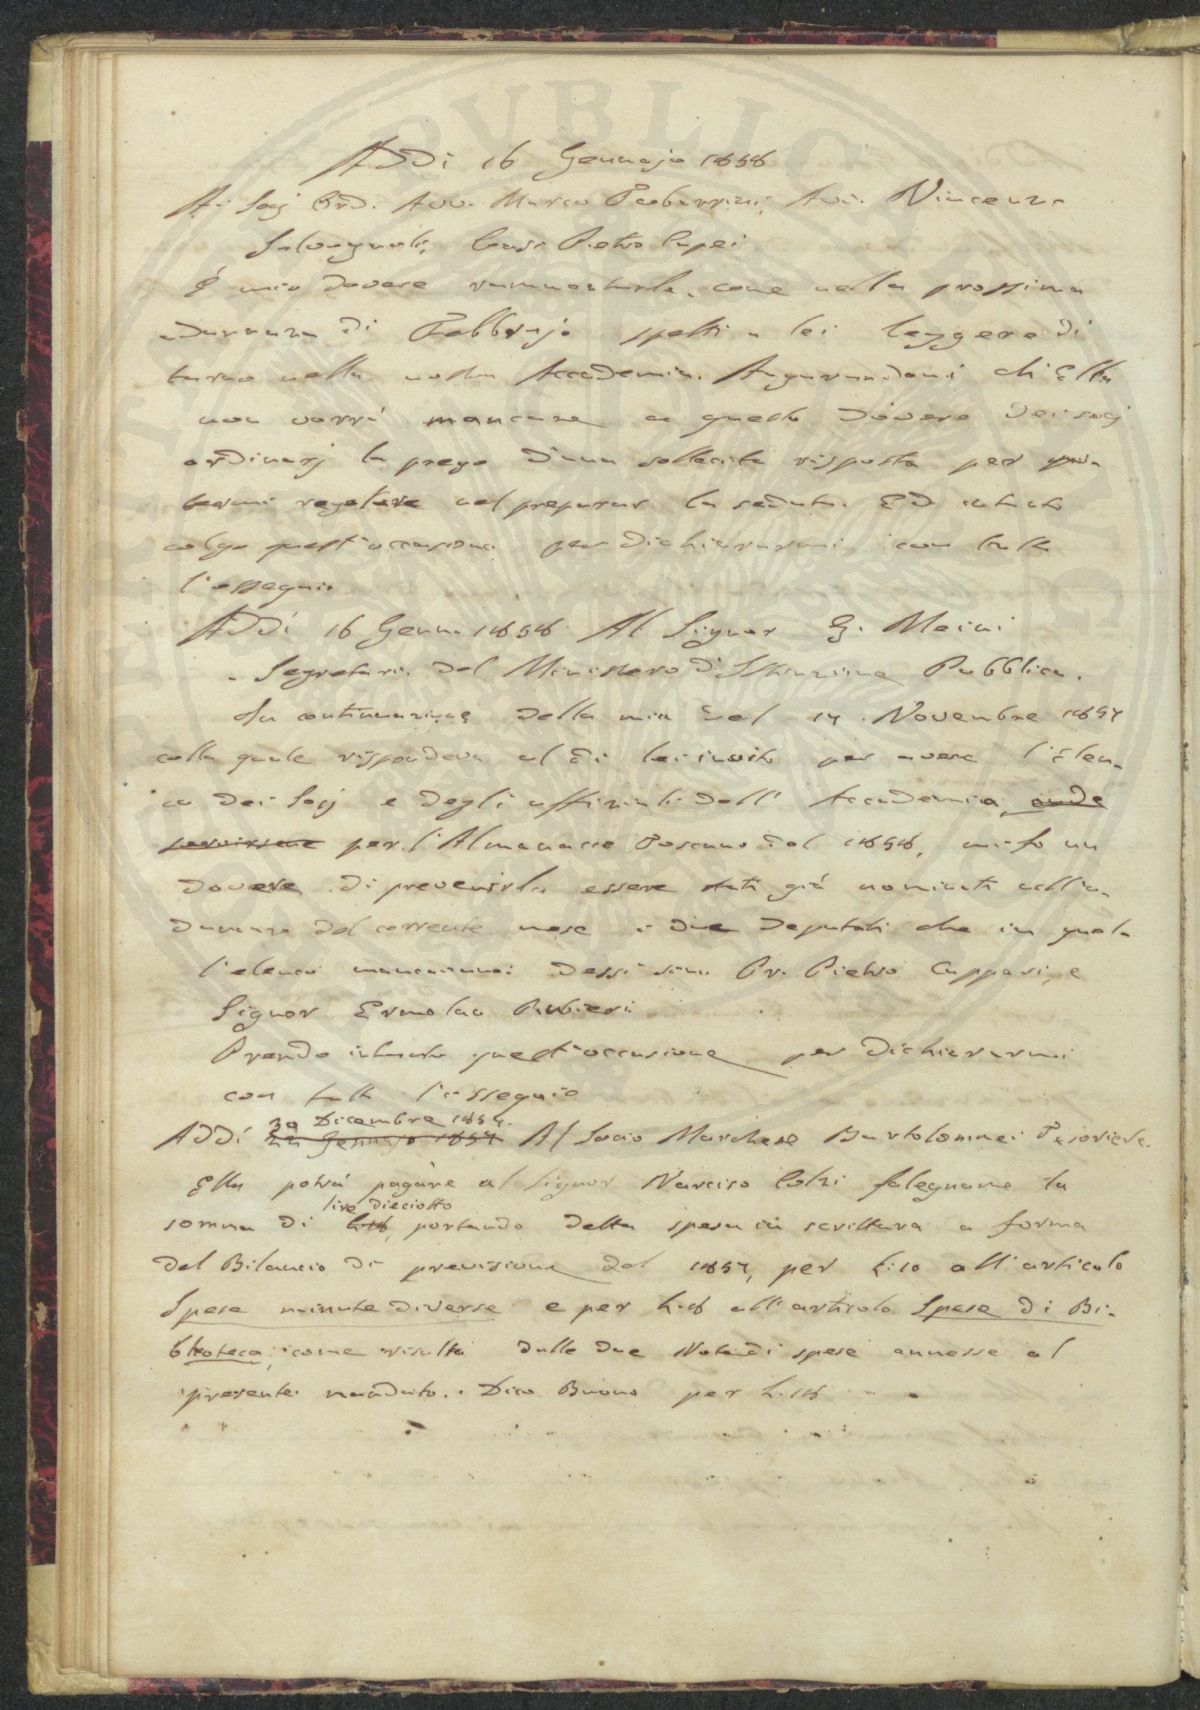 Addì 16 Gennajo 1858
Ai Socj Ord. Avv. Marco Tabarrini, Avv. Vincenzo
Salvagnoli, Cons. Pietro Capei
È mio dovere rammentarle, come nella prossima
adunanza di Febbrajo spetti a lei leggere di
turno nella nostra Accademia. Augurandomi ch'Ella
non vorrà mancare a questo dovere dei socj
ordinarj la prego d'una sollecita risposta per po-
termi regolare nel preparar la seduta. Ed intanto
colgo quest'occasione per dichiararmi con tutto
l'ossequio
Addì 16 Genn. 1858 Al Signor G. Meini
Segretario del Ministero d'Istruzione Pubblica.
In continuazione della mia del 14 Novembre 1857
colla quale rispondeva al di lei invito per avere l'Elen-
co dei Socj e degli uffiziali dell' Accademia, onde
servirsene per l'Almanacco Toscano del 1858, mi fo un
dovere di prevenirla essere stati già nominati nell'a-
dunanza del corrente mese i due Deputati che in quel-
l'elenco mancavano. Dessi sono Pr. Pietro Cuppari, e
Signor Ermolao Rubieri
Prendo intanto quest'occasione per dichiararmi
con tutto l'ossequio
30 Dicembre 1857.
Addì 22 Gennajo 1857 Al Socio Marchese Bartolommei Tesoriere.
Ella potrà pagare al Signor Narciso Colzi falegname la
lire dieciotto
somma di L. 18, portando detta spesa in scrittura a forma
del Bilancio di previsione del 1857, per L. 10 all'articolo
Spese minute diverse e per L. 8 all'articolo Spese di Bi-
blioteca, come risulta dalle due Note di spese annesse al
presente mandato. Dico Buono per L. 18